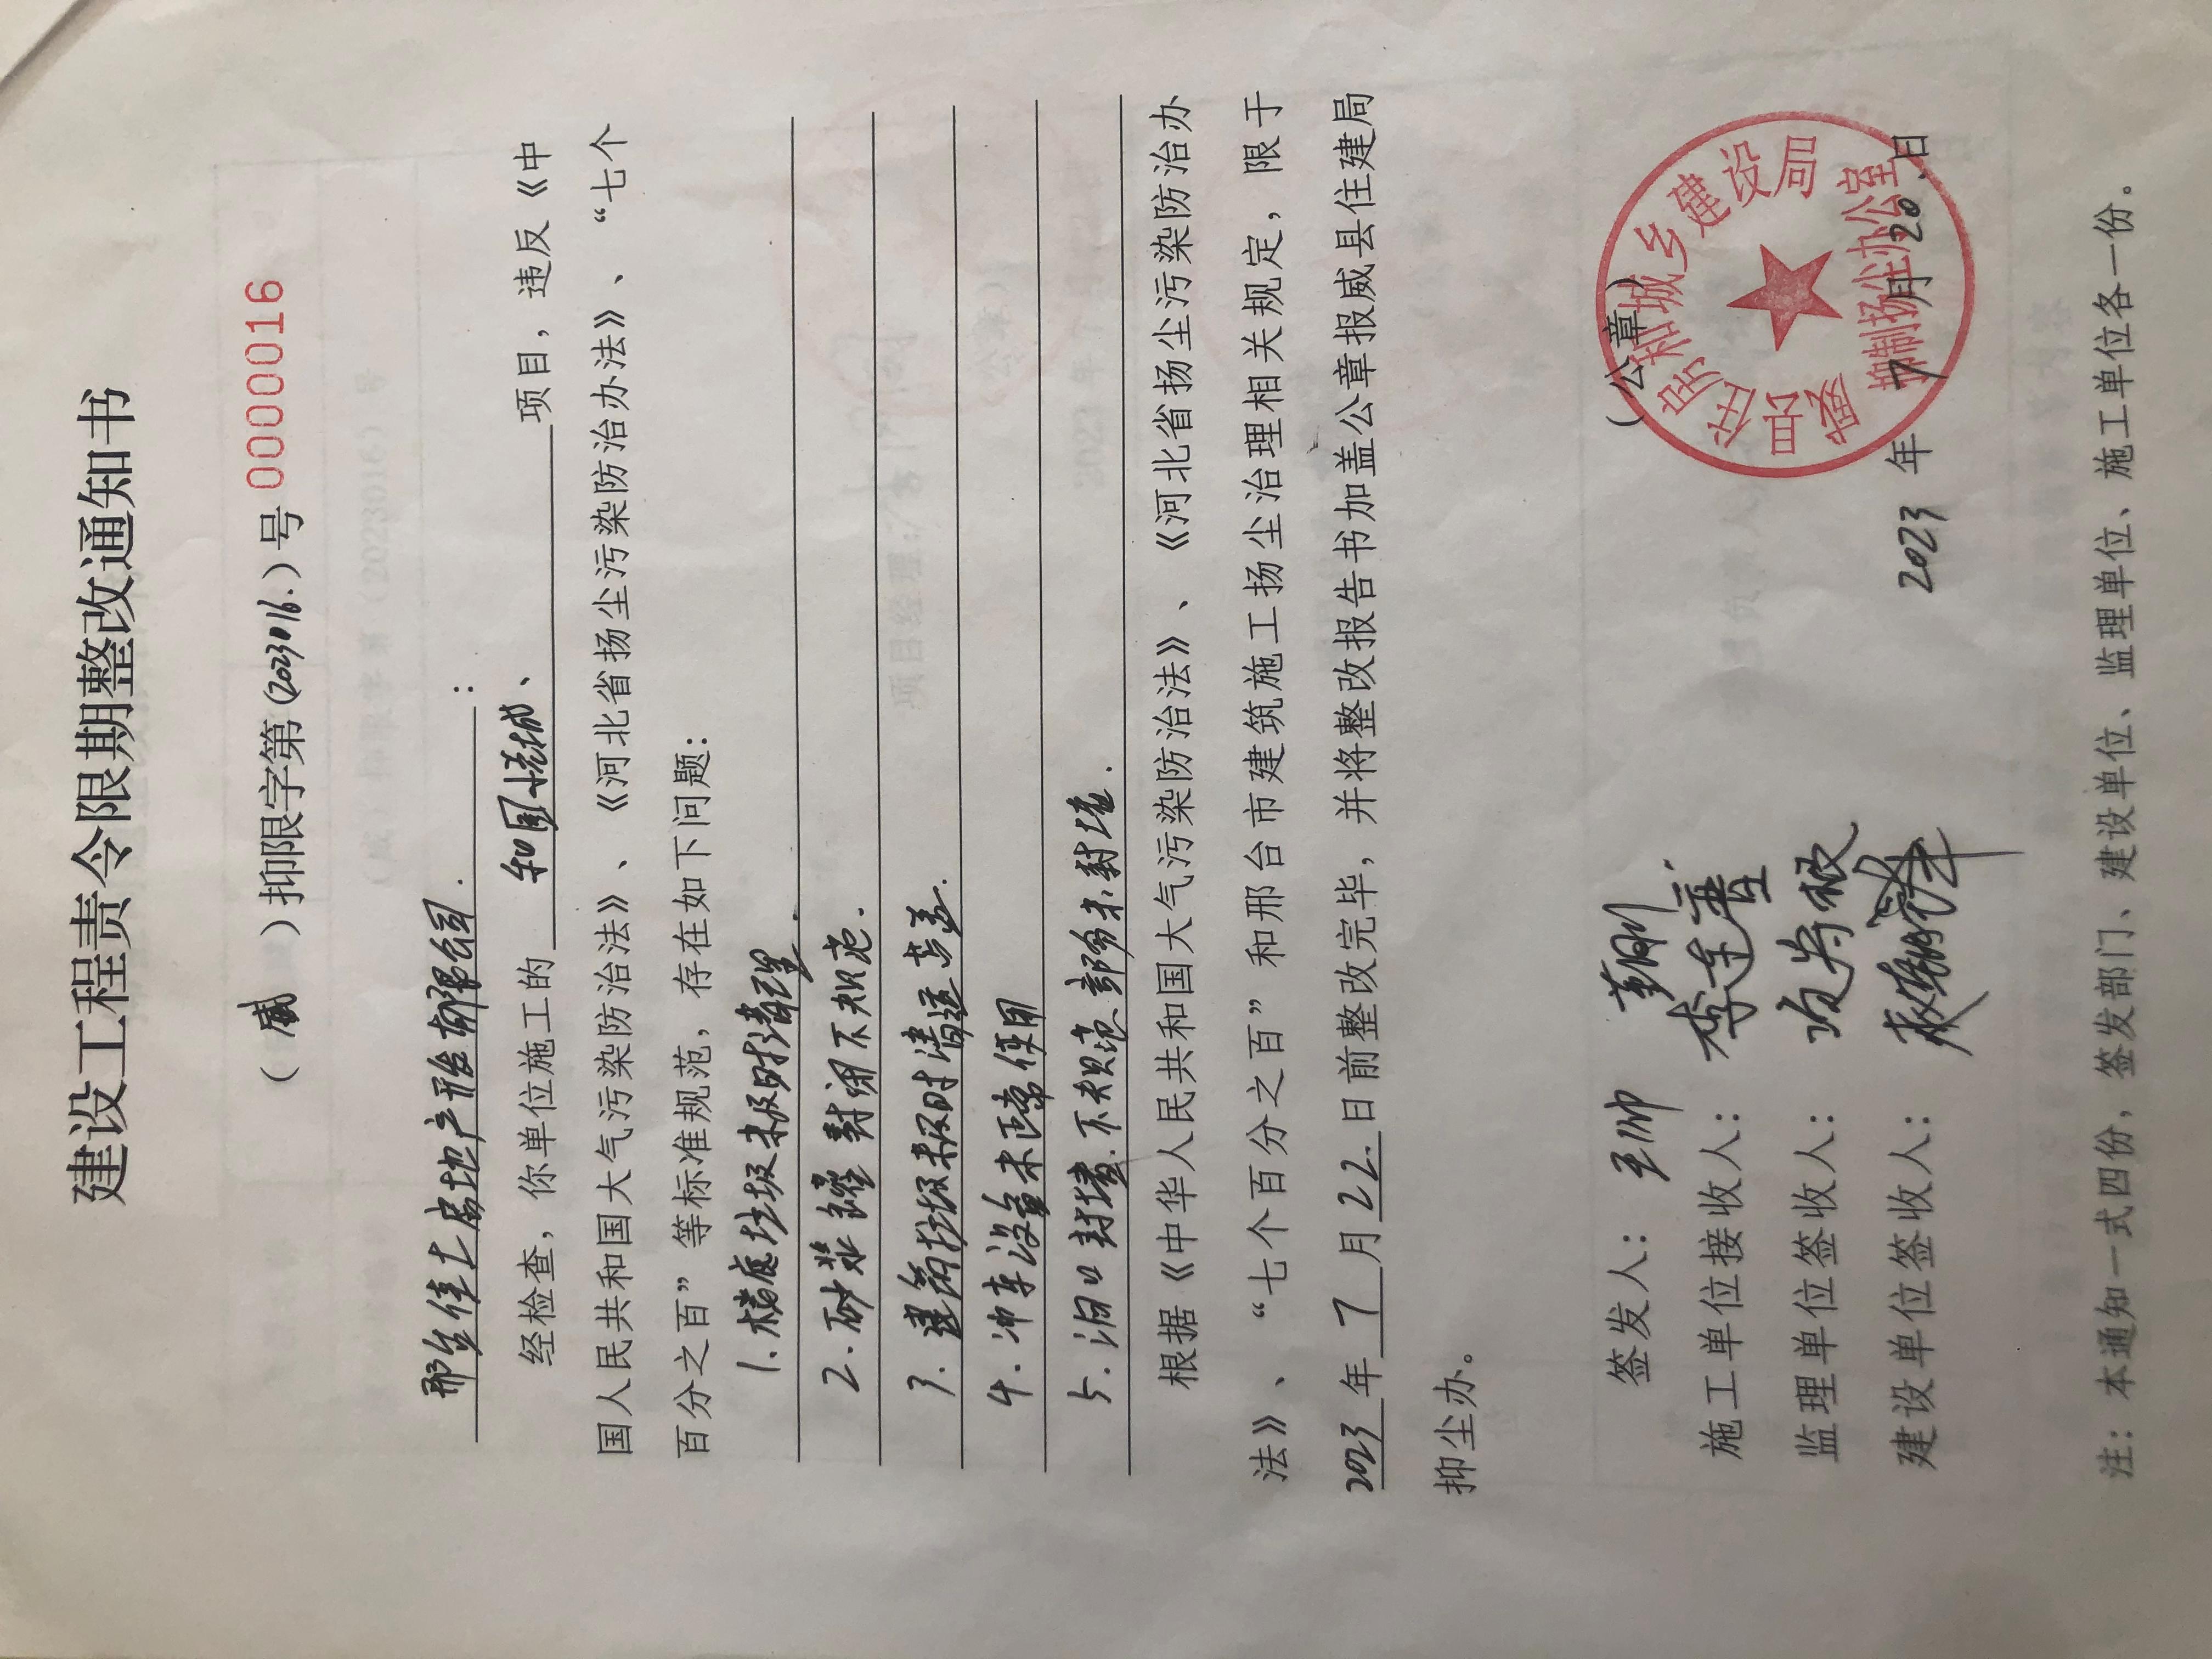 建设工程责令限期整改通知书
（威）抑限字第（2023016.）号 0000016
邢台佳七房地产开发有限公司.：
经检查，你单位施工的 和园悦城、 项目，违反《中
国人民共和国大气污染防治法》、《河北省扬尘污染防治办法》、“七个
百分之百”等标准规范，存在如下问题：
1. 楼底垃圾未及时清理.
2. 砂浆罐封闭不规范.
3. 建筑垃圾未及时清运苫盖.
4. 冲车设备未正常使用
5. 洞口封堵不规范 部分未封堵.
根据《中华人民共和国大气污染防治法》、《河北省扬尘污染防治办
法》、“七个百分之百”和邢台市建筑施工扬尘治理相关规定，限于
2023年7月22.日前整改完毕，并将整改报告书加盖公章报威县住建局
抑尘办。
（公章）
签发人：王帅
施工单位接收人：李连普
监理单位签收人：
建设单位签收人：
2023年7月20日
威县住房和城乡建设局
抑制扬尘办公室
注：本通知一式四份，签发部门、建设单位、监理单位、施工单位各一份。